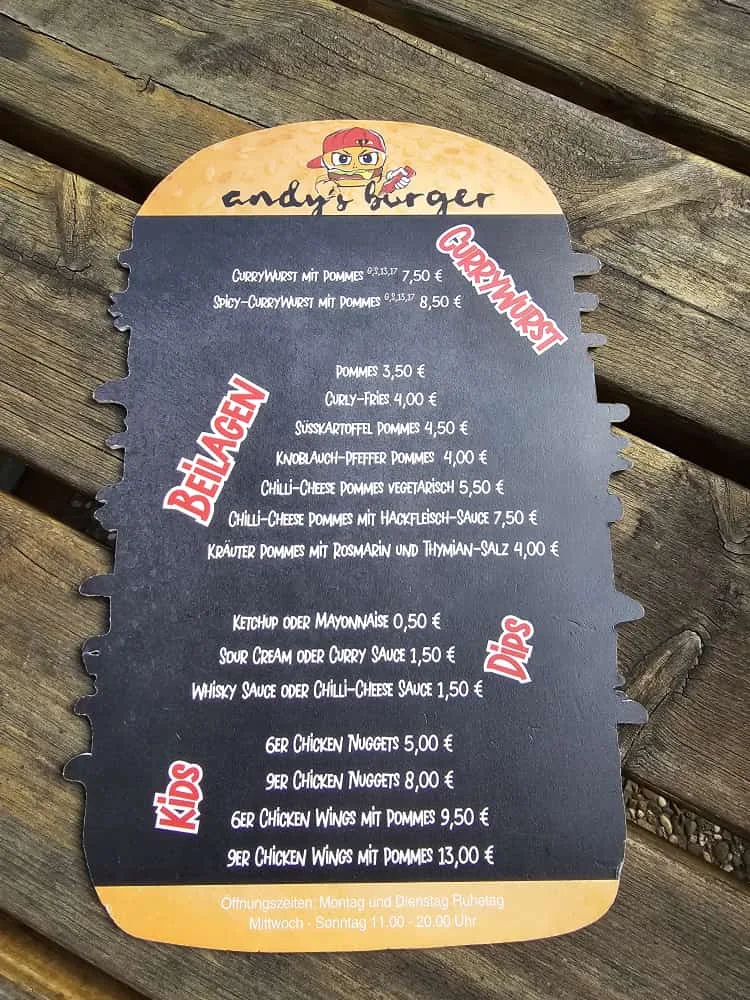 andy's burger
CURRYWURST
CURRYWURST MIT POMMES G,2,13,17 7,50 €
SPICY-CURRYWURST MIT POMMES G,2,13,17 8,50 €
BEILAGEN
POMMES 3,50 €
CURLY-FRIES 4,00 €
SÜSSKARTOFFEL POMMES 4,50 €
KNOBLAUCH-PFEFFER POMMES 4,00 €
CHILLI-CHEESE POMMES VEGETARISCH 5,50 €
CHILLI-CHEESE POMMES MIT HACKFLEISCH-SAUCE 7,50 €
KRÄUTER POMMES MIT ROSMARIN UND THYMIAN-SALZ 4,00 €
DIPS
KETCHUP ODER MAYONNAISE 0,50 €
SOUR CREAM ODER CURRY SAUCE 1,50 €
WHISKY SAUCE ODER CHILLI-CHEESE SAUCE 1,50 €
KIDS
6ER CHICKEN NUGGETS 5,00 €
9ER CHICKEN NUGGETS 8,00 €
6ER CHICKEN WINGS MIT POMMES 9,50 €
9ER CHICKEN WINGS MIT POMMES 13,00 €
Öffnungszeiten: Montag und Dienstag Ruhetag
Mittwoch - Sonntag 11.00 - 20.00 Uhr